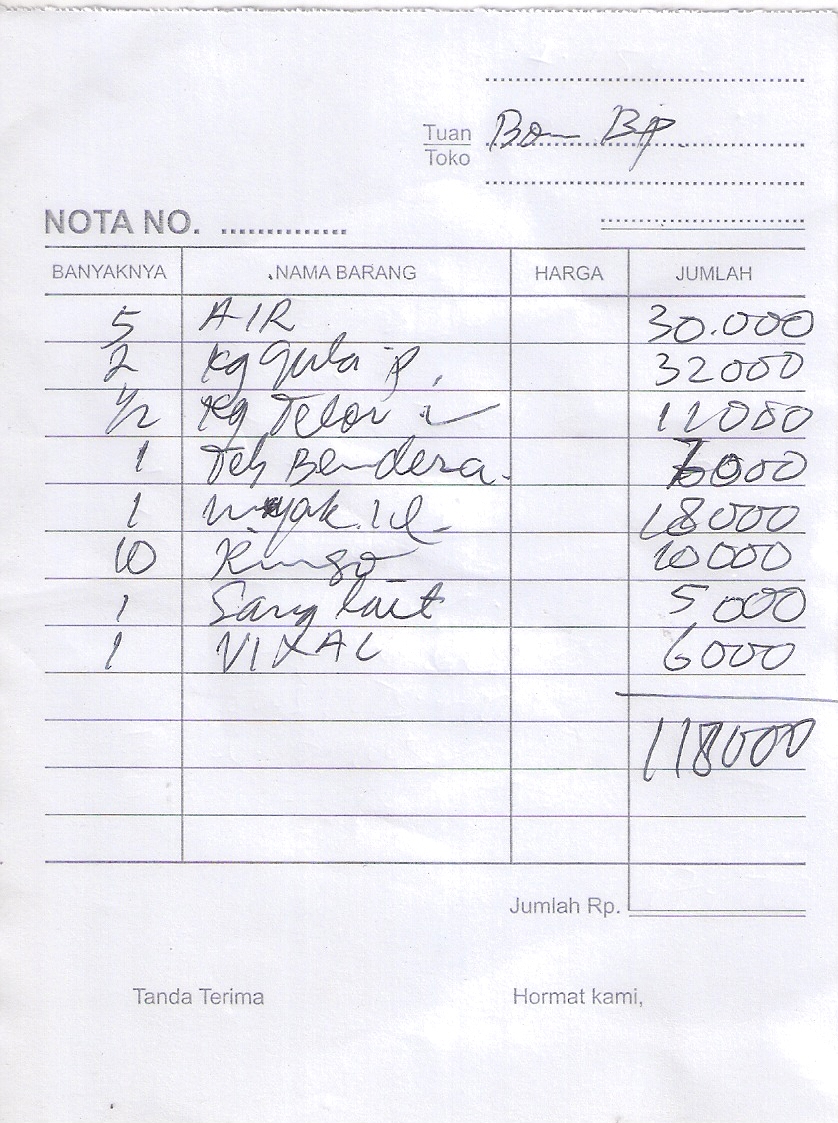 Tuan
Toko
Bon BP.
NOTA NO. ..............
BANYAKNYA NAMA BARANG HARGA JUMLAH
5 AIR 30.000
2 kg gula p. 32000
1/2 kg Telor 11000
1 Teh Bendera. 6000
1 1 L 18000
10 10000
1 Sang lait 5000
1 VIXAL 6000
118000
Jumlah Rp.
Tanda Terima Hormat kami,